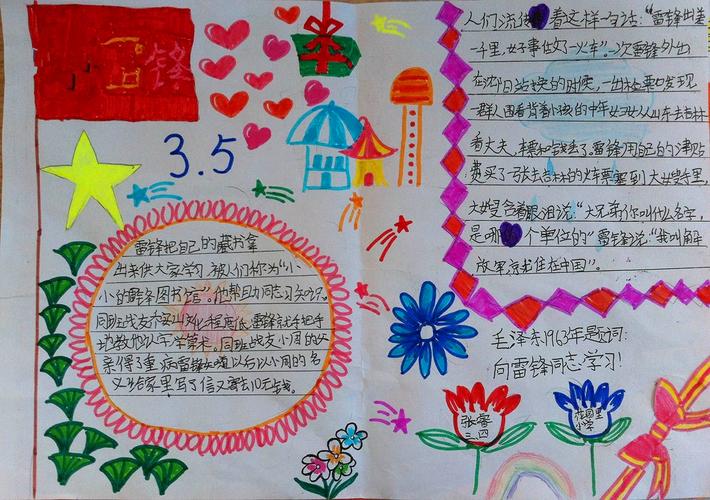 锋
3.5
雷锋把自己的藏书拿
出来供大家学习,被人们称为“小
小的雷锋图书馆”。他帮助同志学习知识。
同班战友乔安山文化程度低,雷锋就手把手
地教他认字、学算术。同班战友小周的父
亲得了重病雷锋知道以后以小周的名
义给家里写了信又寄去10元钱。
人们流传着这样一句话:“雷锋出差
一千里,好事做好一火车”。一次雷锋外出
在沈阳站换的时候,一出检票口发现
一群人围看背着小孩的中年妇女从山东去吉林
看大夫,车票和钱丢了。雷锋用自己的津贴
费买了一张去吉林的火车票塞到大嫂手里,
大嫂含着眼泪说:“大兄弟你叫什么名字,
是哪个单位的”雷锋说:“我叫解
放军,就住在中国”。
毛泽东1963年题词:
向雷锋同志学习!
张睿
三、四
小学